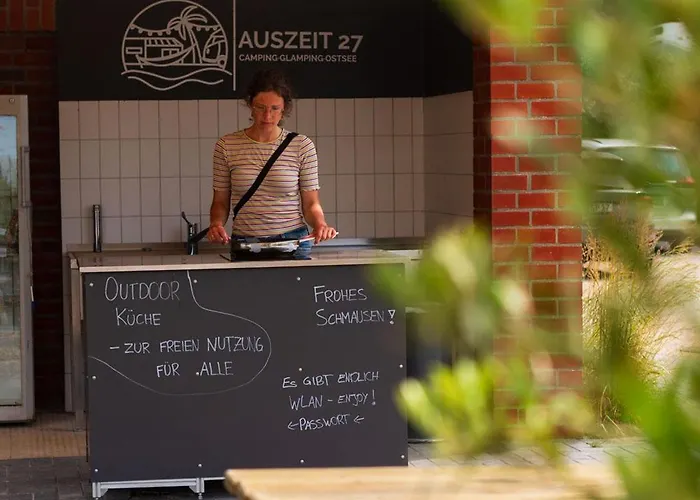 AUSZEIT 27
CAMPING·GLAMPING·OSTSEE
OUTDOOR
KÜCHE
- ZUR FREIEN NUTZUNG
FÜR ALLE
FROHES
SCHMAUSEN!
ES GIBT ENDLICH
WLAN - ENJOY!
← PASSWORT ←